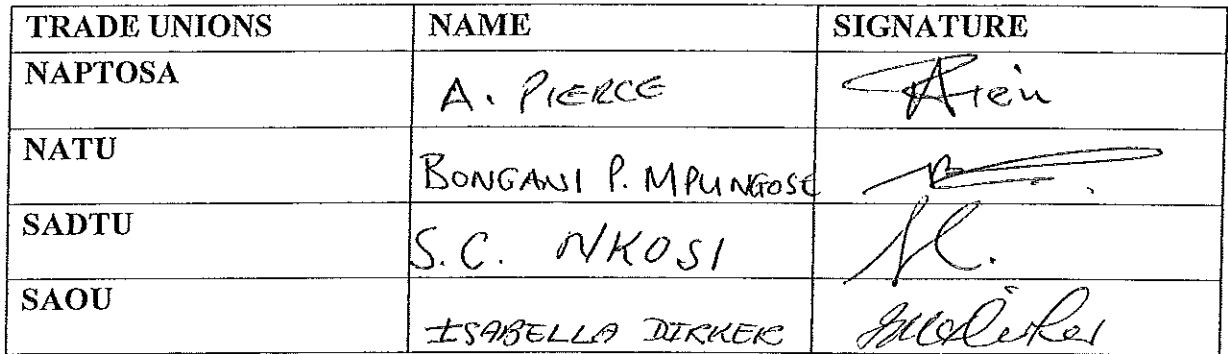 TRADE UNIONS NAME SIGNATURE
NAPTOSA A. PIERCE
NATU BONGANI P. MPUNGOSE
SADTU S.C. NKOSI
SAOU ISABELLA DIRKER